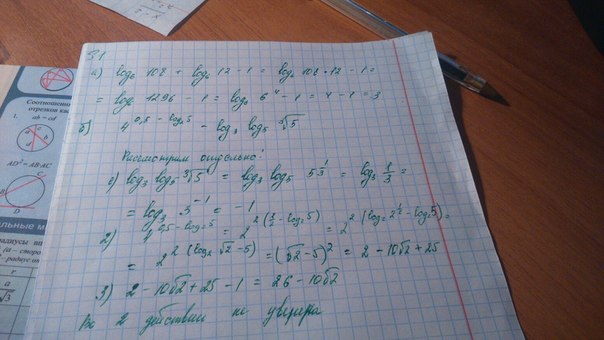 31
а) log₆ 108 + log₆ 12 - 1 = log₆ 108 * 12 - 1 =
= log₆ 1296 - 1 = log₆ 6⁴ - 1 = 4 - 1 = 3
б) 4^(0,5 - log₂5) - log₃ log₅ ∛5
Рассмотрим отдельно:
1) log₃ log₅ ∛5 = log₃ log₅ 5^(1/3) = log₃ 1/3 =
= log₃ 3⁻¹ = -1
2) 4^(0,5 - log₂5) = 2^(2(1/2 - log₂5)) = 2^(2(log₂2^(1/2) - log₂5)) =
= 2^(2(log₂ √2 - 5)) = (√2 - 5)² = 2 - 10√2 + 25
3) 2 - 10√2 + 25 - 1 = 26 - 10√2
Во 2 действии не уверена
Соотношени
отрезков ка
1. ab = cd
AD² = AB·AC
D
радиусы
(a – сторо
r
a
√3